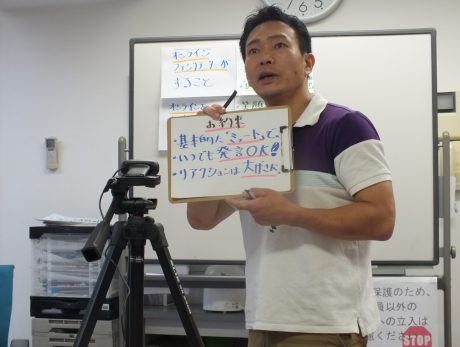 オンライン
ファシリテーターが
すること
オンライン
笑顔
お約束
・基本的に"ミュート"って。
・いつでも発言OK!!
・リアクションは大げさに
保護のため、
員以外の
への立入は
慮ください
STOP